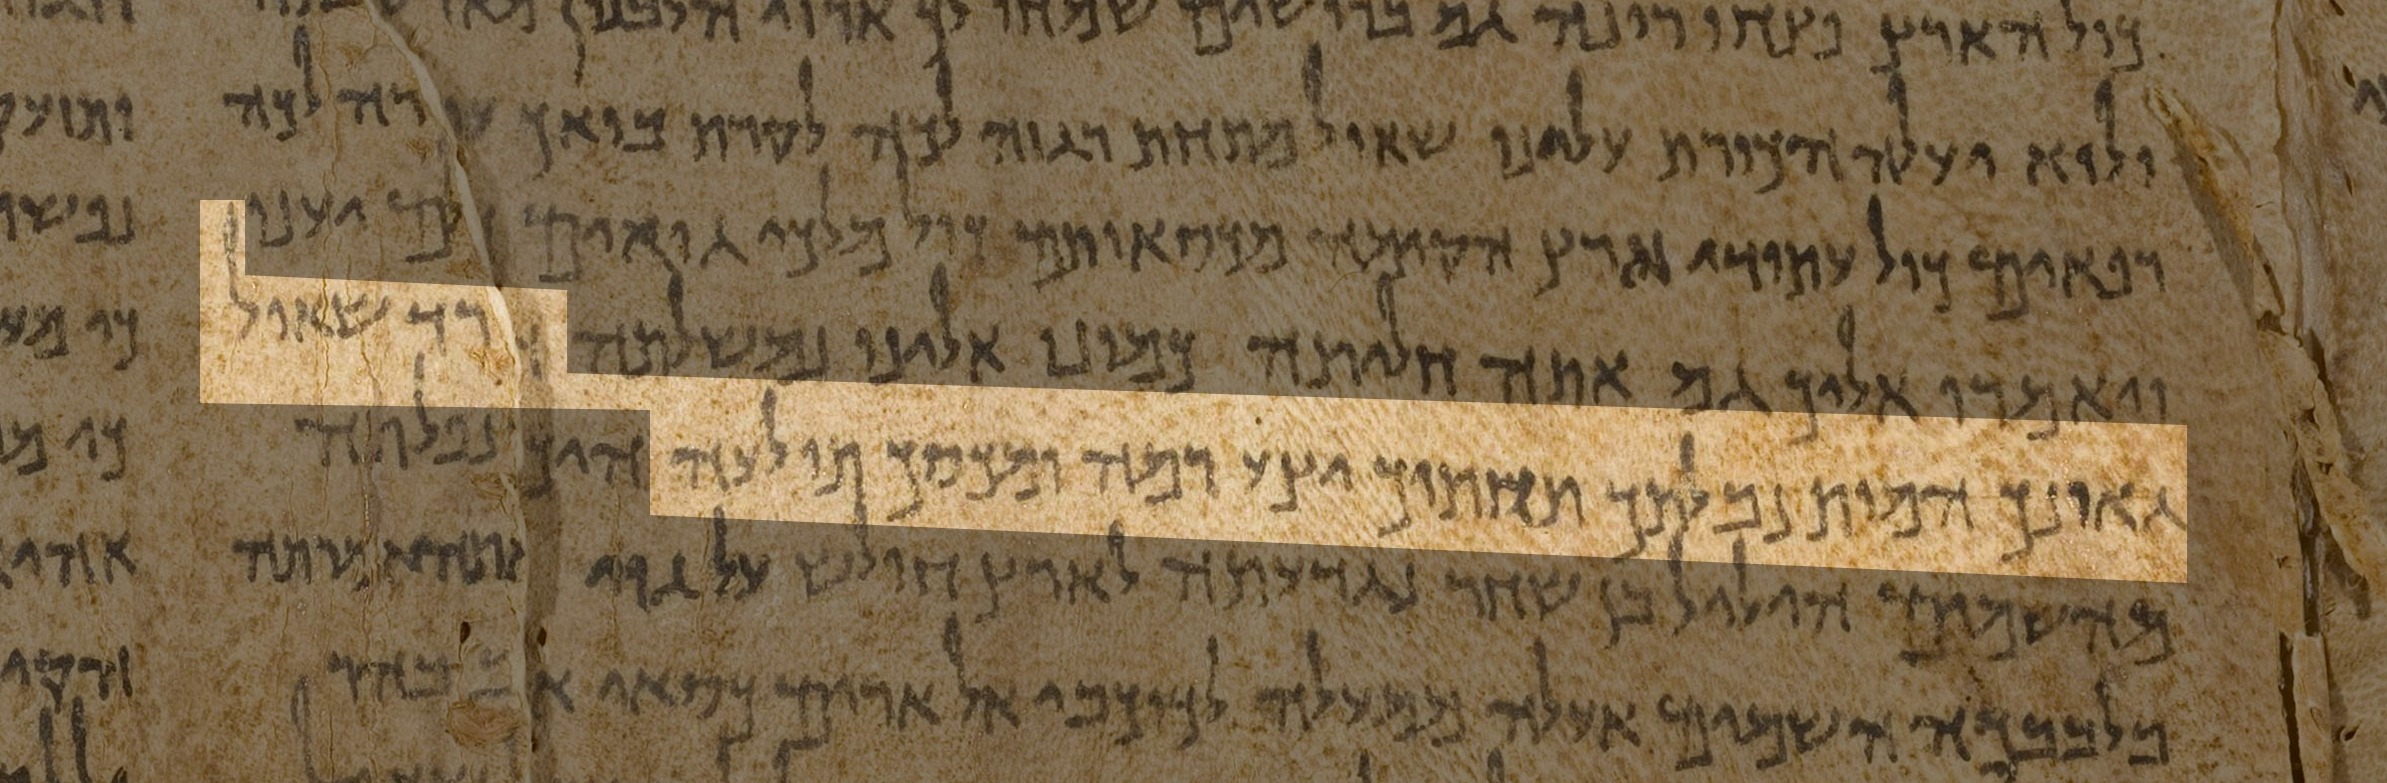 כול הארץ פצחו רונה גם ברושים שמחו לך ארזי הלבנון מאז שכבתה
ולוא יעלה הכורת עלינו שאול מתחת רגזה לכה לקרת בואך עוררה לכה
רפאים כול עתודי ארץ הקימה מכסאותם כול מלכי גואים כולם יענו
ויאמרו אליך גם אתה חליתה כמונו אלינו נמשלתה הורד שאול
גאונך המות נבלתך תחתיך יצע רמה ומכסך תולעה היך נפלתה
מהשמים הילל בן שחר נגדעתה לארץ חולש על גוי ואתה אמרתה
בלבבכה השמים אעלה ממעלה לכוכבי אל ארים כסאי אשב בהר